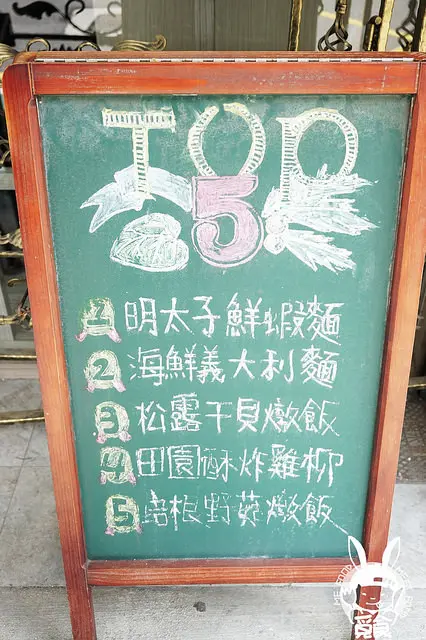 TOP
5
1 明太子鮮蝦麵
2 海鮮義大利麵
3 松露干貝燉飯
4 田園酥炸雞柳
5 培根野菇燉飯